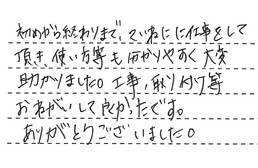 初めから終わりまで、ていねいに仕事をして
頂き、使い方等も分かりやすく大変
助かりました。工事、取り付け等
おねがいして良かったです。
ありがとうございました。